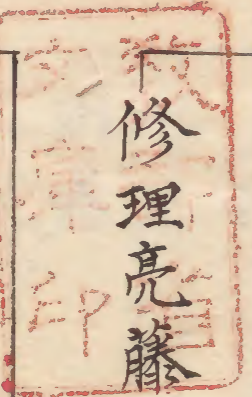 修理亮藤